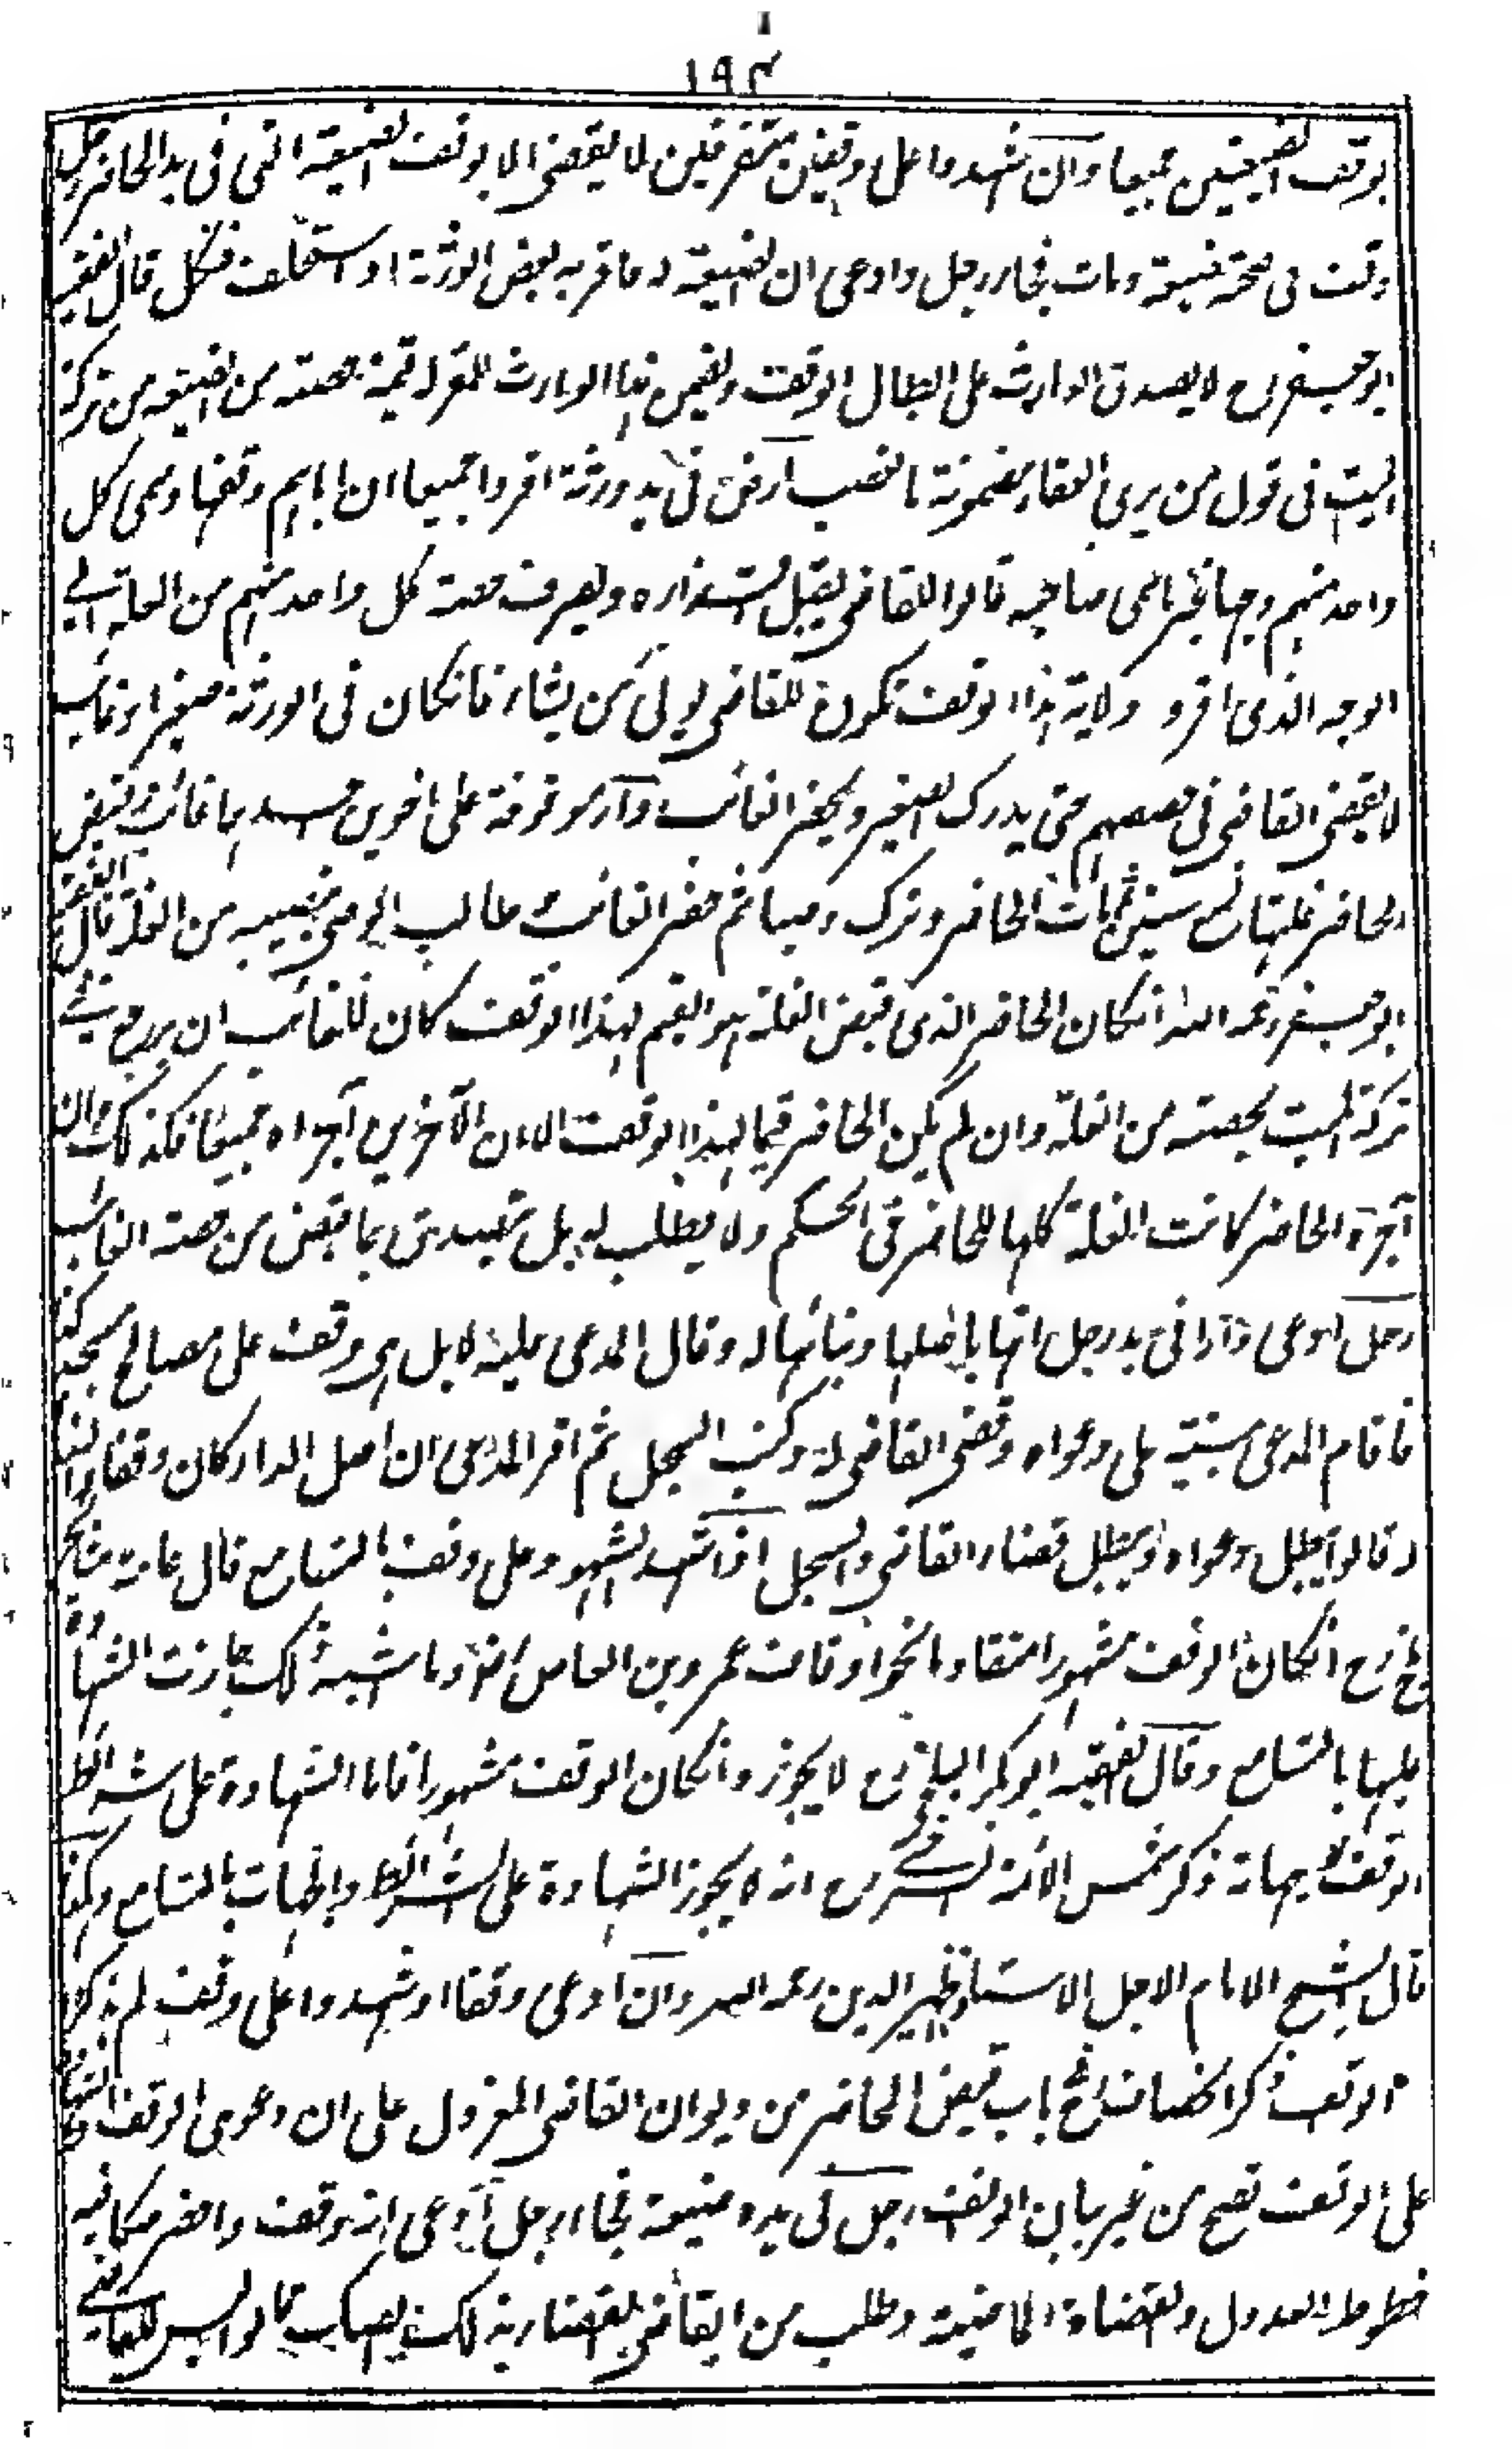 ١٩٣
بوقف الضيعتين جميعا وان شهدوا على وقفين متفرقين لا يقضى الا بوقف الضيعة التى فى يد الحاضر رجل
وقف فى صحته ضيعة ومات فجاء رجل وادعى ان الضيعة له فاقر به بعض الورثة او استحلف فنكل قال الفقيه
ابو جعفر رح لا يصدق الوارث على ابطال الوقف ويضمن هذا الوارث للمقر له قيمة حصته من الضيعة من تركة
الميت فى قول من يرى العقار مضمونة بالغصب ارض فى يد ورثة اقروا جميعا ان اباهم وقفها وسمى كل
واحد منهم وجها غير ما سمى صاحبه قالوا القاضى يقبل اقراره ويصرف حصة كل واحد منهم من الغلة الى
الوجه الذى اقر و ولاية هذا الوقف تكون للقاضى يولى من يشاء فانكان فى الورثة صغير او غائب
لا يقضى القاضى فى حصصهم حتى يدرك الصغير ويحضر الغائب دار موقوفة على اخوين احدهما غائب فقبض
الحاضر غلتها تسع سنين ثم مات الحاضر وترك وصيا ثم حضر الغائب وطالب الوصى بنصيبه من الغلة قال الفقيه
ابو جعفر رحمه الله انكان الحاضر الذى قبض الغلة هو القيم لهذا الوقف كان للغائب ان يرجع فى
تركة الميت بحصته من الغلة وان لم يكن الحاضر قيما لهذا الوقف الا ان الآخرين آجراه جميعا فكذلك وان
آجره الحاضر كانت الغلة كلها للحاضر فى الحكم ولا يطلب له بل يتصدق بما قبض من حصة الغائب
رجل ادعى دارا فى يد رجل انها باصلها وبنائها له وقال المدعى عليه لا بل هى وقف على مصالح مسجد كذا
فاقام المدعى بينته على دعواه وقضى القاضى له وكتب السجل ثم اقر المدعى ان اصل الدار كان وقفا والبناء
له قالوا يبطل دعواه ويبطل قضاء القاضى والسجل اذا شهد الشهود على وقف بالتسامع قال عامة مشايخ
بلخ رح انكان الوقف مشهورا متقادما نحو اوقاف عمرو بن العاص رض وما اشبه ذلك جازت الشهادة
عليها بالتسامع وقال الفقيه ابو بكر البلخى رح لا يجوز وانكان الوقف مشهورا فاما الشهادة على شرائط
الوقف وجهاته ذكر شمس الائمة السرخسى رح انه لا يجوز الشهادة على الشرائط والجهات بالتسامع وهكذا
قال الشيخ الامام الاجل الاستاذ ظهير الدين رحمه الله وان ادعى وقفا او شهدوا على وقف لم يذكروا
الوقف ذكر الخصاف رح باب قبض المحاضر من ديوان القاضى المعزول على ان دعوى الوقف والشهادة
على الوقف تصح من غير بيان الواقف رجل فى يده ضيعة فجاء رجل ادعى انه وقف واحضر صكا فيه
خطوط العدول والقضاة الماضية وطلب من القاضى القضاء بذلك الصك قالوا ليس للقاضى